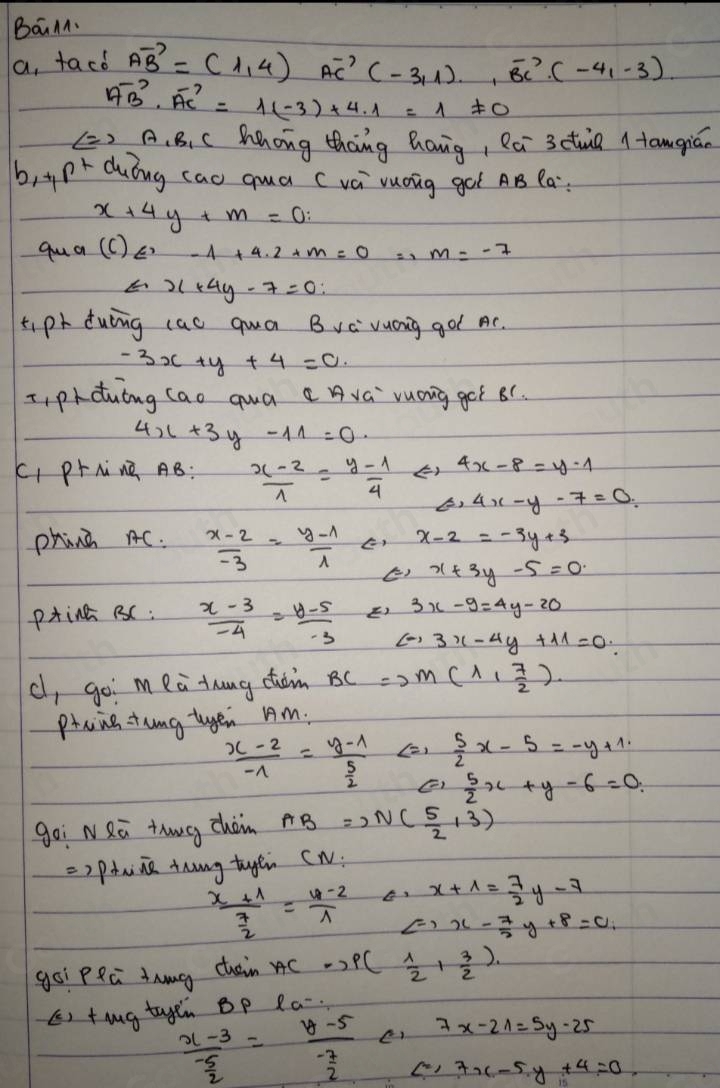 Bài 11.
a, ta có AB⃗ = (1,4) AC⃗ (-3,1). , BC⃗ (-4,-3).
AB⃗ . AC⃗ = 1(-3)+4.1 = 1 ≠ 0
<=> A,B,C không thẳng hàng, là 3 đỉnh 1 tam giác
b, +, pt đường cao qua C và vuông góc AB là:
x + 4y + m = 0:
qua (C) <=> -1 + 4.2 + m = 0 => m = -7
<=> x + 4y - 7 = 0:
+, pt đường cao qua B và vuông góc AC.
-3x + y + 4 = 0.
+, pt đường cao qua A và vuông góc BC.
4x + 3y - 11 = 0.
c, ptrình AB: (x-2)/1 = (y-1)/4 <=> 4x - 8 = y - 1
<=> 4x - y - 7 = 0.
ptrình AC: (x-2)/-3 = (y-1)/1 <=> x - 2 = -3y + 3
<=> x + 3y - 5 = 0.
ptrình BC: (x-3)/-4 = (y-5)/-3 <=> 3x - 9 = 4y - 20
<=> 3x - 4y + 11 = 0.
d, gọi M là trung điểm BC => M(1, 7/2).
ptrình trung tuyến AM:
(x-2)/-1 = (y-1)/(5/2) <=> 5/2 x - 5 = -y + 1.
<=> 5/2 x + y - 6 = 0.
gọi N là trung điểm AB => N(5/2, 3)
=> ptrình trung tuyến CN:
(x+1)/(7/2) = (y-2)/1 <=> x + 1 = 7/2 y - 7
<=> x - 7/2 y + 8 = 0.
gọi P là trung điểm AC => P(1/2, 3/2).
<=> trung tuyến BP là:
(x-3)/(-5/2) = (y-5)/(-7/2) <=> 7x - 21 = 5y - 25
<=> 7x - 5y + 4 = 0